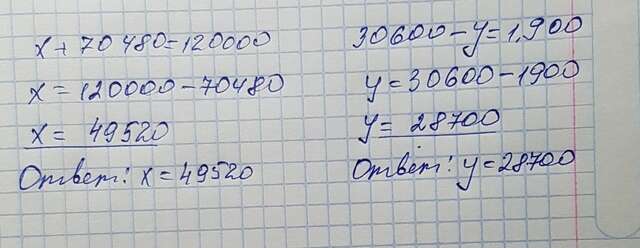 x + 70480 = 120000
x = 120000 - 70480
x = 49520
Ответ: x = 49520
30600 - y = 1.900
y = 30600 - 1900
y = 28700
Ответ: y = 28700